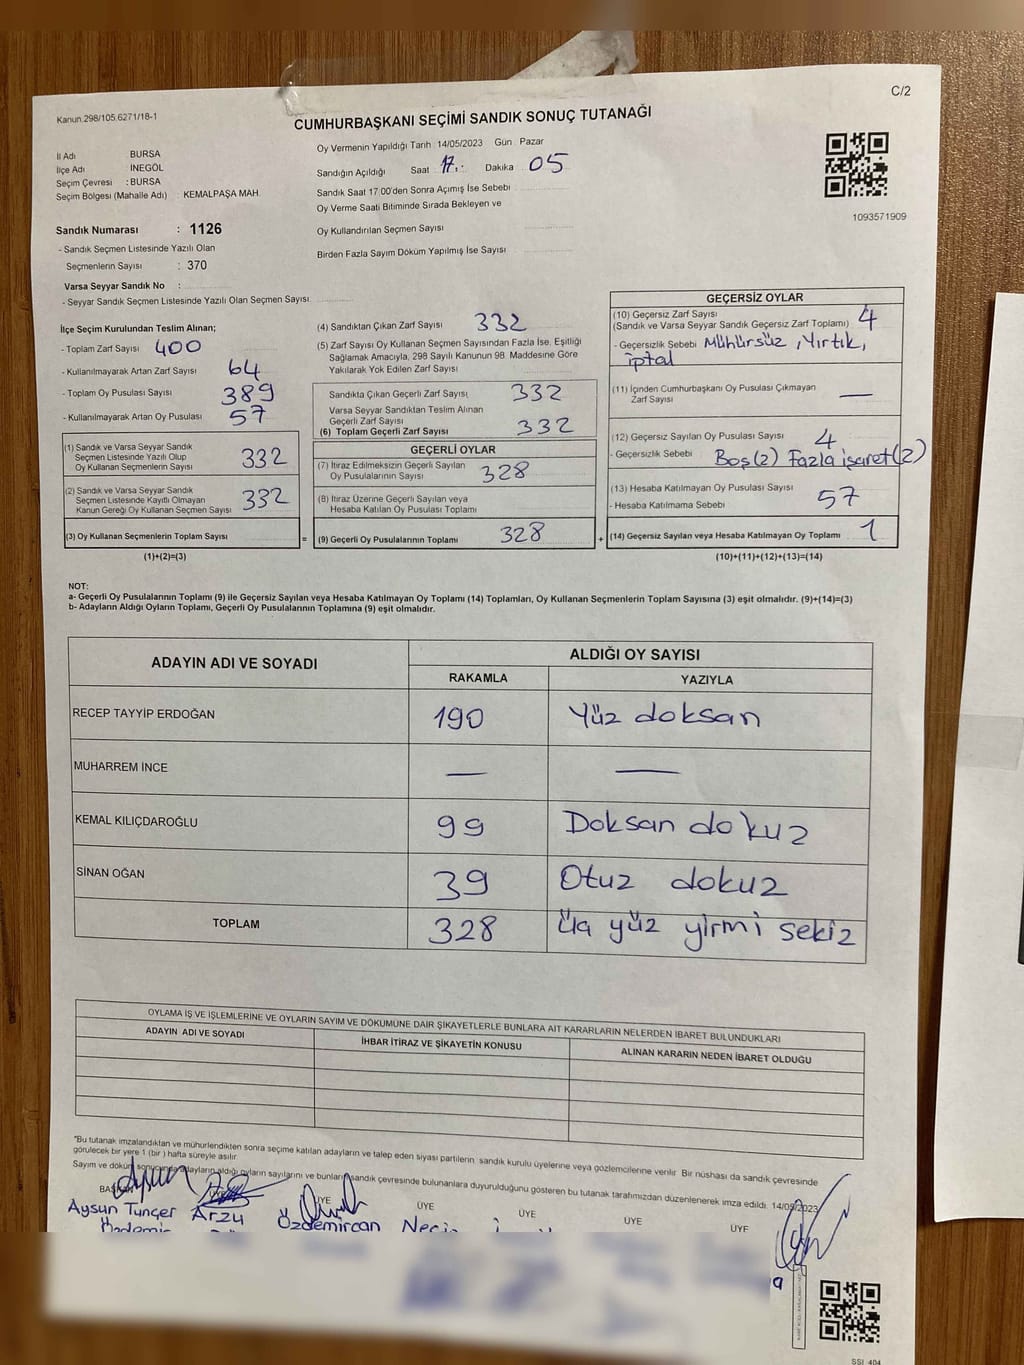 C/2
Kanun.298/105.6271/18-1
CUMHURBAŞKANI SEÇİMİ SANDIK SONUÇ TUTANAĞI
İl Adı BURSA
İlçe Adı İNEGÖL
Seçim Çevresi : BURSA
Seçim Bölgesi (Mahalle Adı) : KEMALPAŞA MAH.
Oy Vermenin Yapıldığı Tarih : 14/05/2023 Gün : Pazar
Sandığın Açıldığı Saat 17 : Dakika 05
Sandık Saat 17.00'den Sonra Açımış İse Sebebi
Oy Verme Saati Bitiminde Sırada Bekleyen ve
Oy Kullandırılan Seçmen Sayısı
Birden Fazla Sayım Döküm Yapılmış İse Sayısı
1093571909
Sandık Numarası : 1126
- Sandık Seçmen Listesinde Yazılı Olan
Seçmenlerin Sayısı : 370
Varsa Seyyar Sandık No :
- Seyyar Sandık Seçmen Listesinde Yazılı Olan Seçmen Sayısı:
İlçe Seçim Kurulundan Teslim Alınan;
- Toplam Zarf Sayısı 400
- Kullanılmayarak Artan Zarf Sayısı 64
- Toplam Oy Pusulası Sayısı 389
- Kullanılmayarak Artan Oy Pusulası 57
(1) Sandık ve Varsa Seyyar Sandık
Seçmen Listesinde Yazılı Olup
Oy Kullanan Seçmenlerin Sayısı 332
(2) Sandık ve Varsa Seyyar Sandık
Seçmen Listesinde Kayıtlı Olmayan
Kanun Gereği Oy Kullanan Seçmen Sayısı 332
(3) Oy Kullanan Seçmenlerin Toplam Sayısı =
(1)+(2)=(3)
(4) Sandıktan Çıkan Zarf Sayısı 332
(5) Zarf Sayısı Oy Kullanan Seçmen Sayısından Fazla İse, Eşitliği
Sağlamak Amacıyla, 298 Sayılı Kanunun 98. Maddesine Göre
Yakılarak Yok Edilen Zarf Sayısı
Sandıkta Çıkan Geçerli Zarf Sayısı 332
Varsa Seyyar Sandıktan Teslim Alınan
Geçerli Zarf Sayısı
(6) Toplam Geçerli Zarf Sayısı 332
GEÇERLİ OYLAR
(7) İtiraz Edilmeksizin Geçerli Sayılan
Oy Pusulalarının Sayısı 328
(8) İtiraz Üzerine Geçerli Sayılan veya
Hesaba Katılan Oy Pusulası Toplamı
(9) Geçerli Oy Pusulalarının Toplamı 328 +
GEÇERSİZ OYLAR
(10) Geçersiz Zarf Sayısı
(Sandık ve Varsa Seyyar Sandık Geçersiz Zarf Toplamı) 4
- Geçersizlik Sebebi Mühürsüz, Yırtık,
iptal
(11) İçinden Cumhurbaşkanı Oy Pusulası Çıkmayan
Zarf Sayısı —
(12) Geçersiz Sayılan Oy Pusulası Sayısı 4
- Geçersizlik Sebebi Boş(2) Fazla işaret(2)
(13) Hesaba Katılmayan Oy Pusulası Sayısı 57
- Hesaba Katılmama Sebebi
(14) Geçersiz Sayılan veya Hesaba Katılmayan Oy Toplamı 1
(10)+(11)+(12)+(13)=(14)
NOT:
a- Geçerli Oy Pusulalarının Toplamı (9) ile Geçersiz Sayılan veya Hesaba Katılmayan Oy Toplamı (14) Toplamları, Oy Kullanan Seçmenlerin Toplam Sayısına (3) eşit olmalıdır. (9)+(14)=(3)
b- Adayların Aldığı Oyların Toplamı, Geçerli Oy Pusulalarının Toplamına (9) eşit olmalıdır.
ADAYIN ADI VE SOYADI ALDIĞI OY SAYISI
RAKAMLA YAZIYLA
RECEP TAYYİP ERDOĞAN 190 Yüz doksan
MUHARREM İNCE — —
KEMAL KILIÇDAROĞLU 99 Doksan dokuz
SİNAN OĞAN 39 Otuz dokuz
TOPLAM 328 Üç yüz yirmi sekiz
OYLAMA İŞ VE İŞLEMLERİNE VE OYLARIN SAYIM VE DÖKÜMÜNE DAİR ŞİKAYETLERLE BUNLARA AİT KARARLARIN NELERDEN İBARET BULUNDUKLARI
ADAYIN ADI VE SOYADI İHBAR İTİRAZ VE ŞİKAYETİN KONUSU ALINAN KARARIN NEDEN İBARET OLDUĞU
"Bu tutanak imzalandıktan ve mühürlendikten sonra seçime katılan adayların ve talep eden siyasi partilerin, sandık kurulu üyelerine veya gözlemcilerine verilir. Bir nüshası da sandık çevresinde
görülecek bir yere 1 (bir) hafta süreyle asılır.
Sayım ve döküm sonucunda adayların aldığı oyların sayılarını ve bunların sandık çevresinde bulunanlara duyurulduğunu gösteren bu tutanak tarafımızdan düzenlenerek imza edildi. 14/05/2023
BAŞKAN ÜYE ÜYE ÜYE ÜYE ÜYE
Aysun Tunçer Arzu Özdemircan
SSI: 404